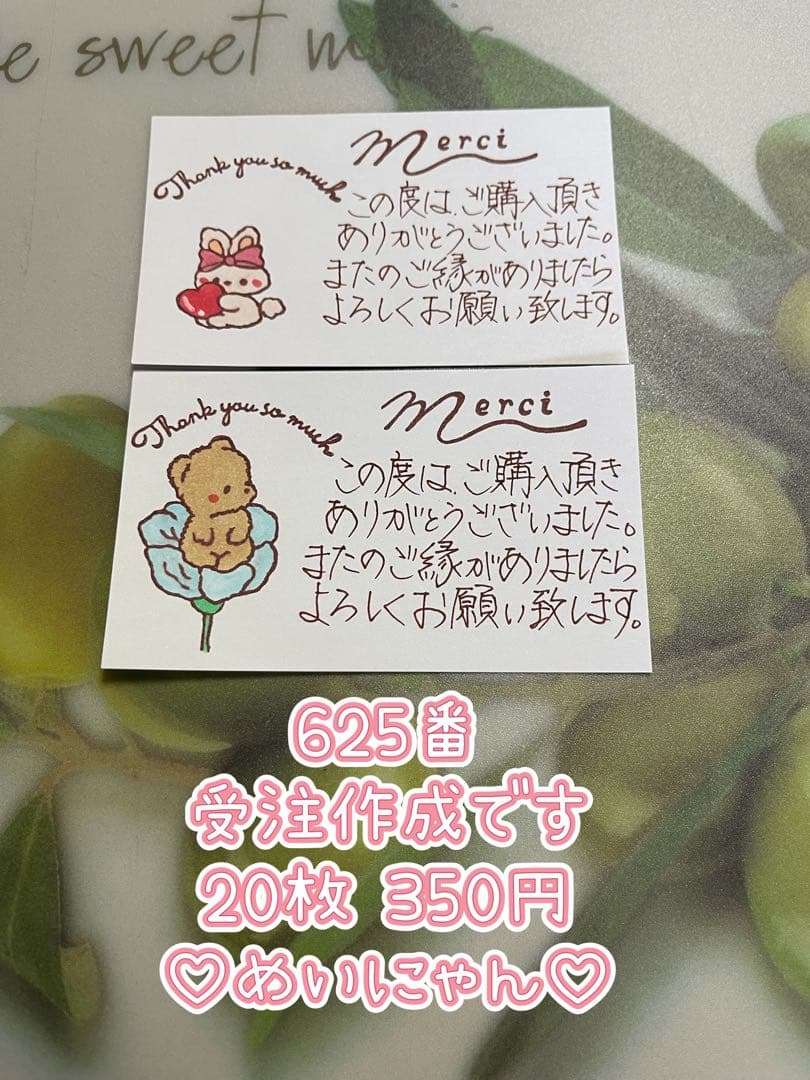 e sweet m
Merci
Thank you so much
この度は、ご購入頂き
ありがとうございました。
またのご縁がありましたら
よろしくお願い致します。
Merci
Thank you so much
この度は、ご購入頂き
ありがとうございました。
またのご縁がありましたら
よろしくお願い致します。
625番
受注作成です
20枚 350円
♡めいにゃん♡